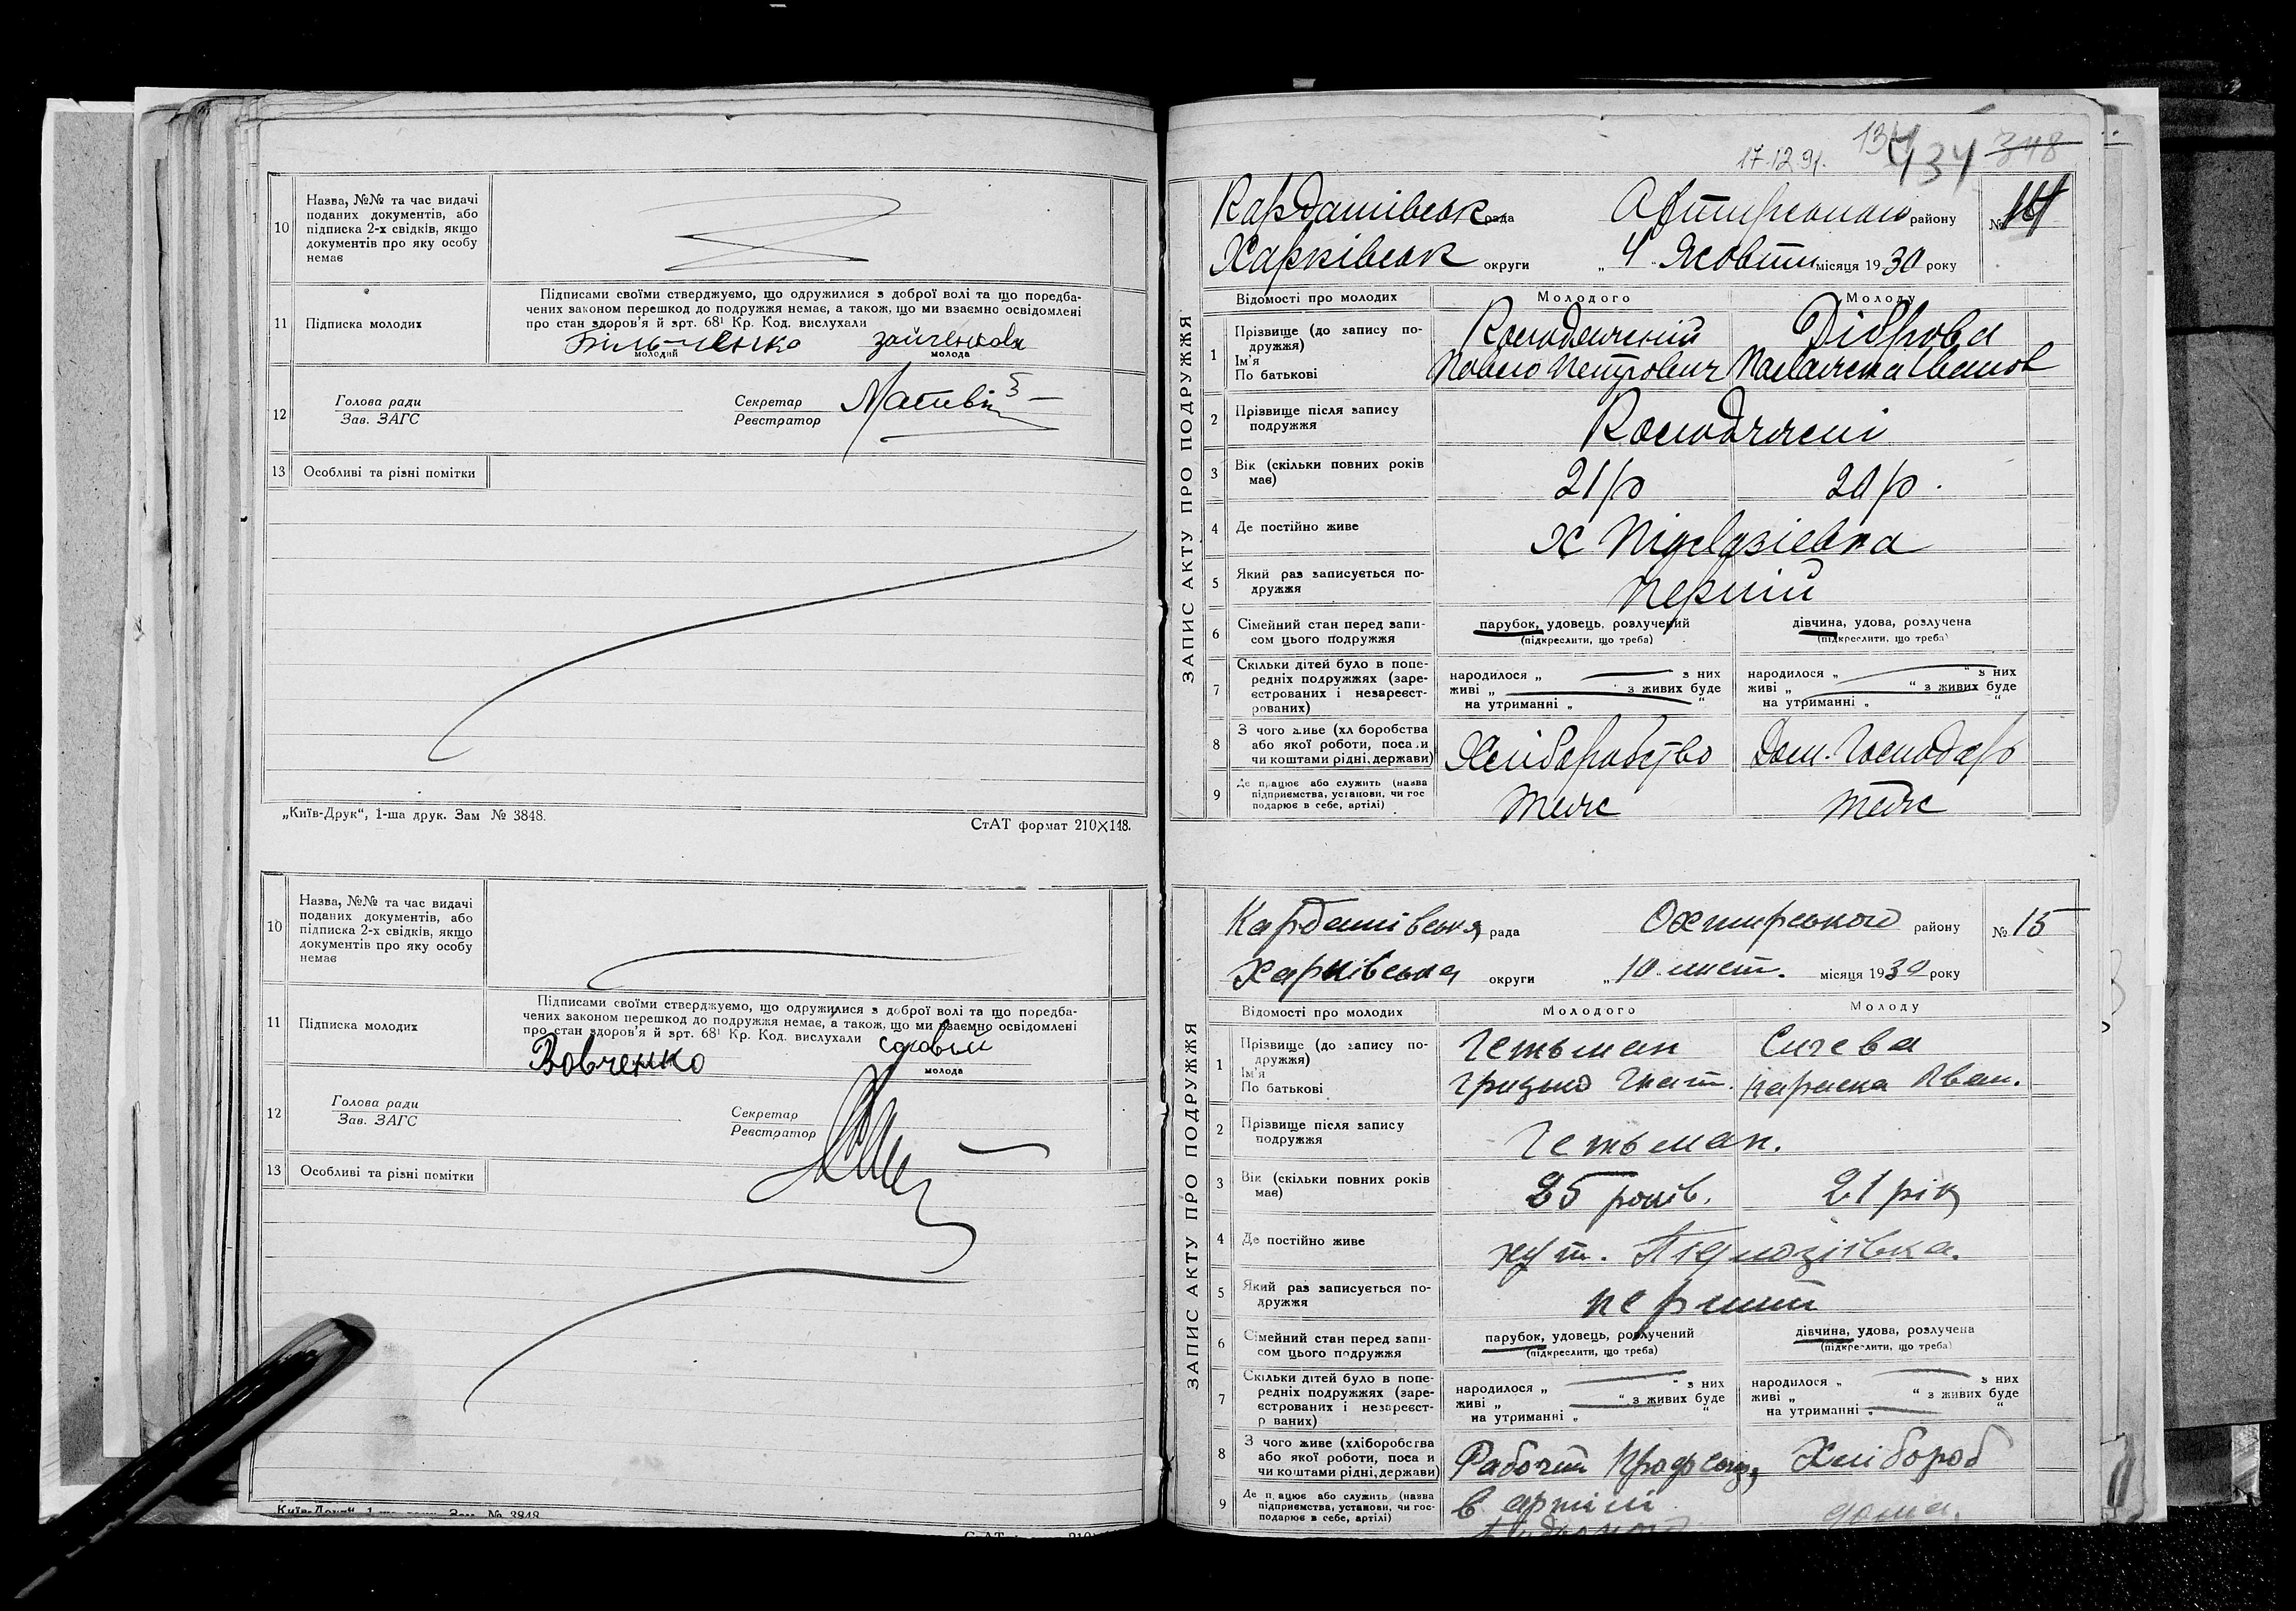 10
Назва, №№ та час видачі
поданих документів, або
підписка 2-х свідків, якщо
документів про яку особу
немає
11 Підписка молодих
Підписами своїми стверджуємо, що одружилися з доброї волі та що поредба-
чених законом перешкод до подружжя немає, а також, що ми взаємно освідомлені
про стан здоров'я й зрт. 68¹ Кр. Код. вислухали
Більченко зайченкова
молодий молода
12
Голова ради
Зав. ЗАГС
Секретар
Реєстратор
13 Особливі та різні помітки
„Київ-Друк“, 1-ша друк. Зам № 3848.
СтАТ формат 210×148.
10
Назва, №№ та час видачі
поданих документів, або
підписка 2-х свідків, якщо
документів про яку особу
немає
11 Підписка молодих
Підписами своїми стверджуємо, що одружилися з доброї волі та що поредба-
чених законом перешкод до подружжя немає, а також, що ми взаємно освідомлені
про стан здоров'я й зрт. 68¹ Кр. Код. вислухали
Вовченко
молода
12
Голова ради
Зав. ЗАГС
Секретар
Реєстратор
13 Особливі та різні помітки
Київ-Друк“ 1-ша друк. Зам № 3848
17.12.91. 134 434 348
ЗАПИС АКТУ ПРО ПОДРУЖЖЯ
Кардашівськ рада району № 14
Харківськ округи „4 Жовтн місяця 1930 року
Відомості про молодих Молодого Молоду
1
Прізвище (до запису по-
дружжя)
Ім'я
По батькові
Діброва
Павло Петрович Іванов
2
Прізвище після запису
подружжя
3
Вік (скільки повних років
має)
21 р 20 р.
4 Де постійно живе
х
5
Який раз записується по-
дружжя
Перший
6
Сімейний стан перед запи-
сом цього подружжя
парубок, удовець, розлучений
(підкреслити, що треба)
дівчина, удова, розлучена
(підкреслити, що треба)
7
Скільки дітей було в попе-
редніх подружжях (заре-
єстрованих і незареєст-
рованих)
народилося „ з них
живі „ з живих буде
на утриманні „ “
народилося „ “ з них
живі „ “ з живих буде
на утриманні „ “
8
З чого живе (хл боробства
або якої роботи, поса и
чи коштами рідні, держави)
Хліборобство Дом. Господар
9
Де працює або служить (назва
підприємства, установи, чи гос
подарює в себе, артілі)
Теж Теж
ЗАПИС АКТУ ПРО ПОДРУЖЖЯ
Кардашівська рада Охтирського району № 15
Харківська округи „10 лист. місяця 1930 року
Відомості про молодих Молодого Молоду
1
Прізвище (до запису по-
дружжя)
Ім'я
По батькові
Гетьман Сигева
Грицько Гнат. Параска Іван.
2
Прізвище після запису
подружжя
Гетьман.
3
Вік (скільки повних років
має)
25 років. 21 рік
4 Де постійно живе
хут. Підлозіївка.
5
Який раз записується по-
дружжя
перший
6
Сімейний стан перед запи-
сом цього подружжя
парубок, удовець, розлучений
(підкреслити, що треба)
дівчина, удова, розлучена
(підкреслити, що треба)
7
Скільки дітей було в попе-
редніх подружжях (заре-
єстрованих і незареєст-
р ваних)
народилося „ “ з них
живі „ “ з живих буде
на утриманні „ “
народилося „ з них
живі „ “ з живих буде
на утриманні „ “
8
З чого живе (хліборобства
або якої роботи, поса и
чи коштами рідні, держави)
Рабочий Хлібороб
9
Де п ацює або служить (назва
підприємства, установи, чи гос-
подарює в себе, артілі)
в артілі дома.